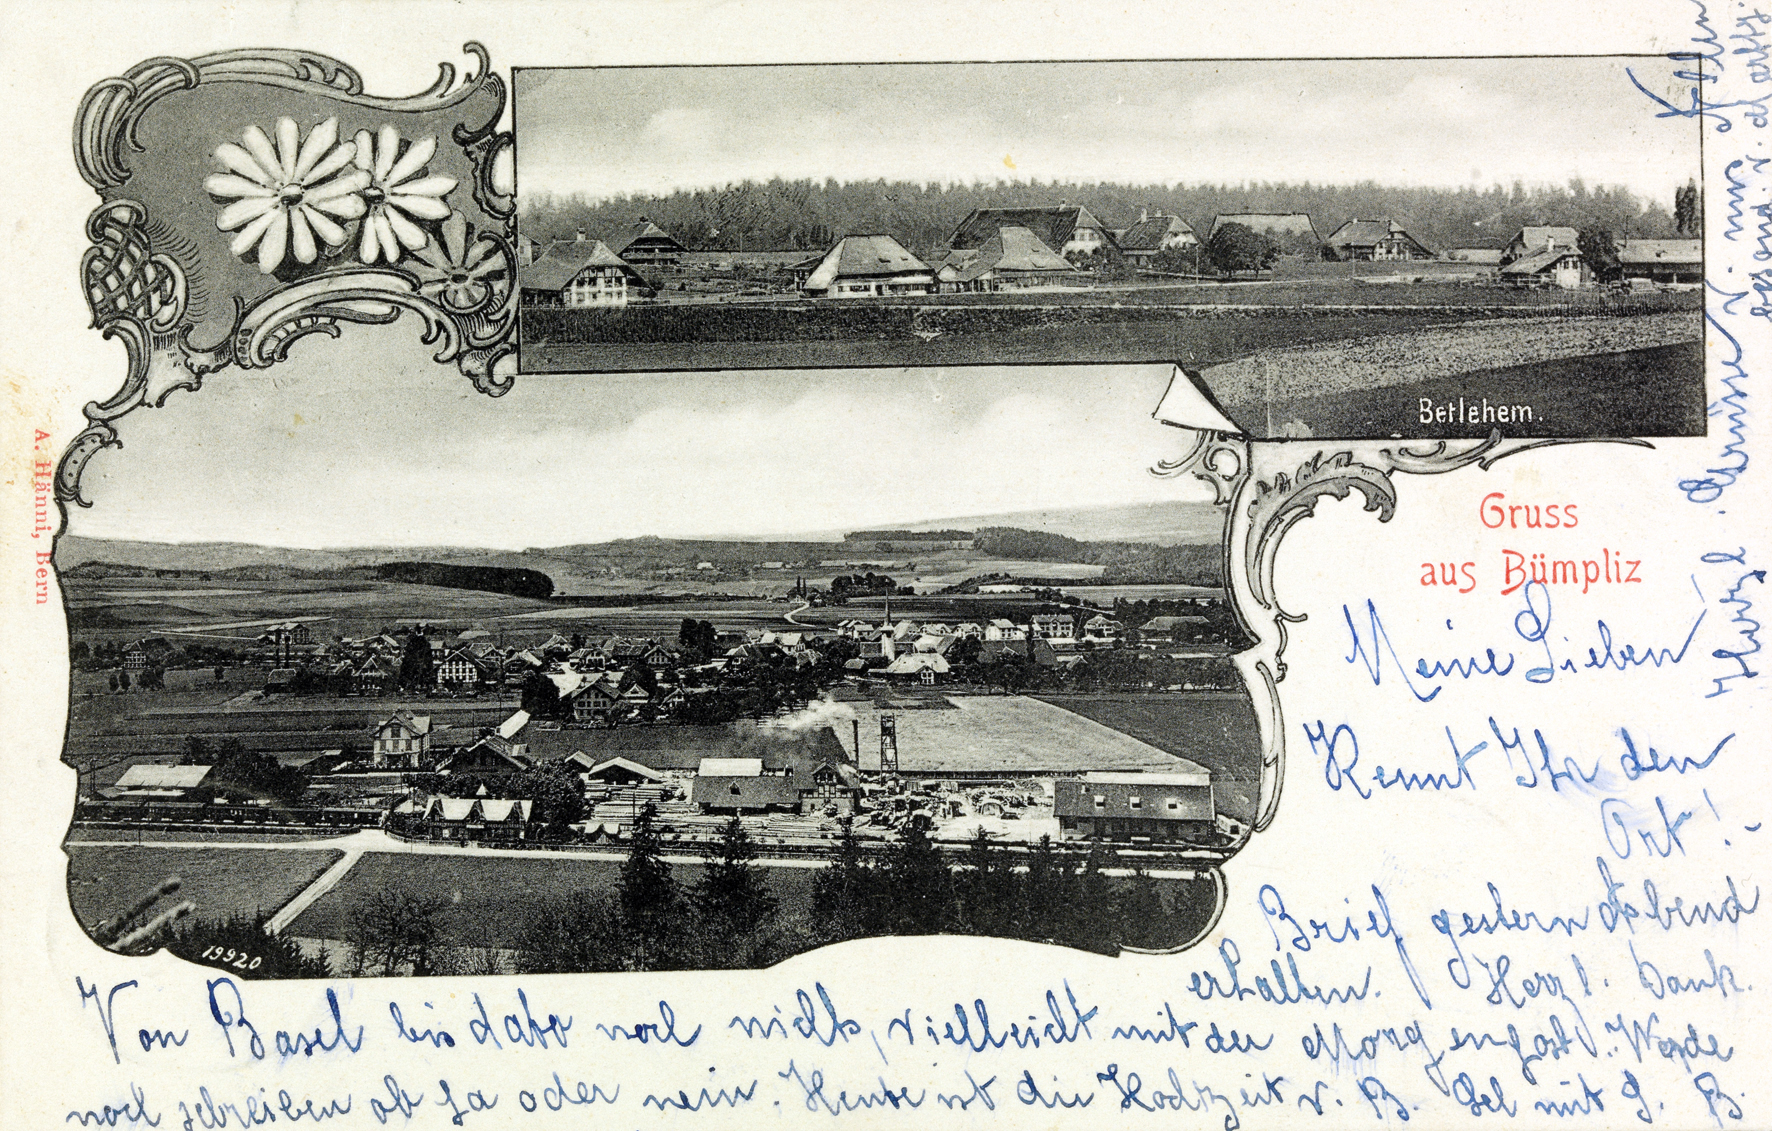 Betlehem.
Gruss
aus Bümpliz
A. Hänni, Bern
19920
Meine Lieben!
Kennt Ihr den
Ort!
Brief gestern Abend
erhalten. Herzl. Dank.
Von Basel bis dato noch nichts, vielleicht mit der Morgenpost. Werde
noch schreiben ob ja oder nein. Heute ist die Hochzeit v. B. mit G. B.
Herzl. Grüsse v. mir Allen